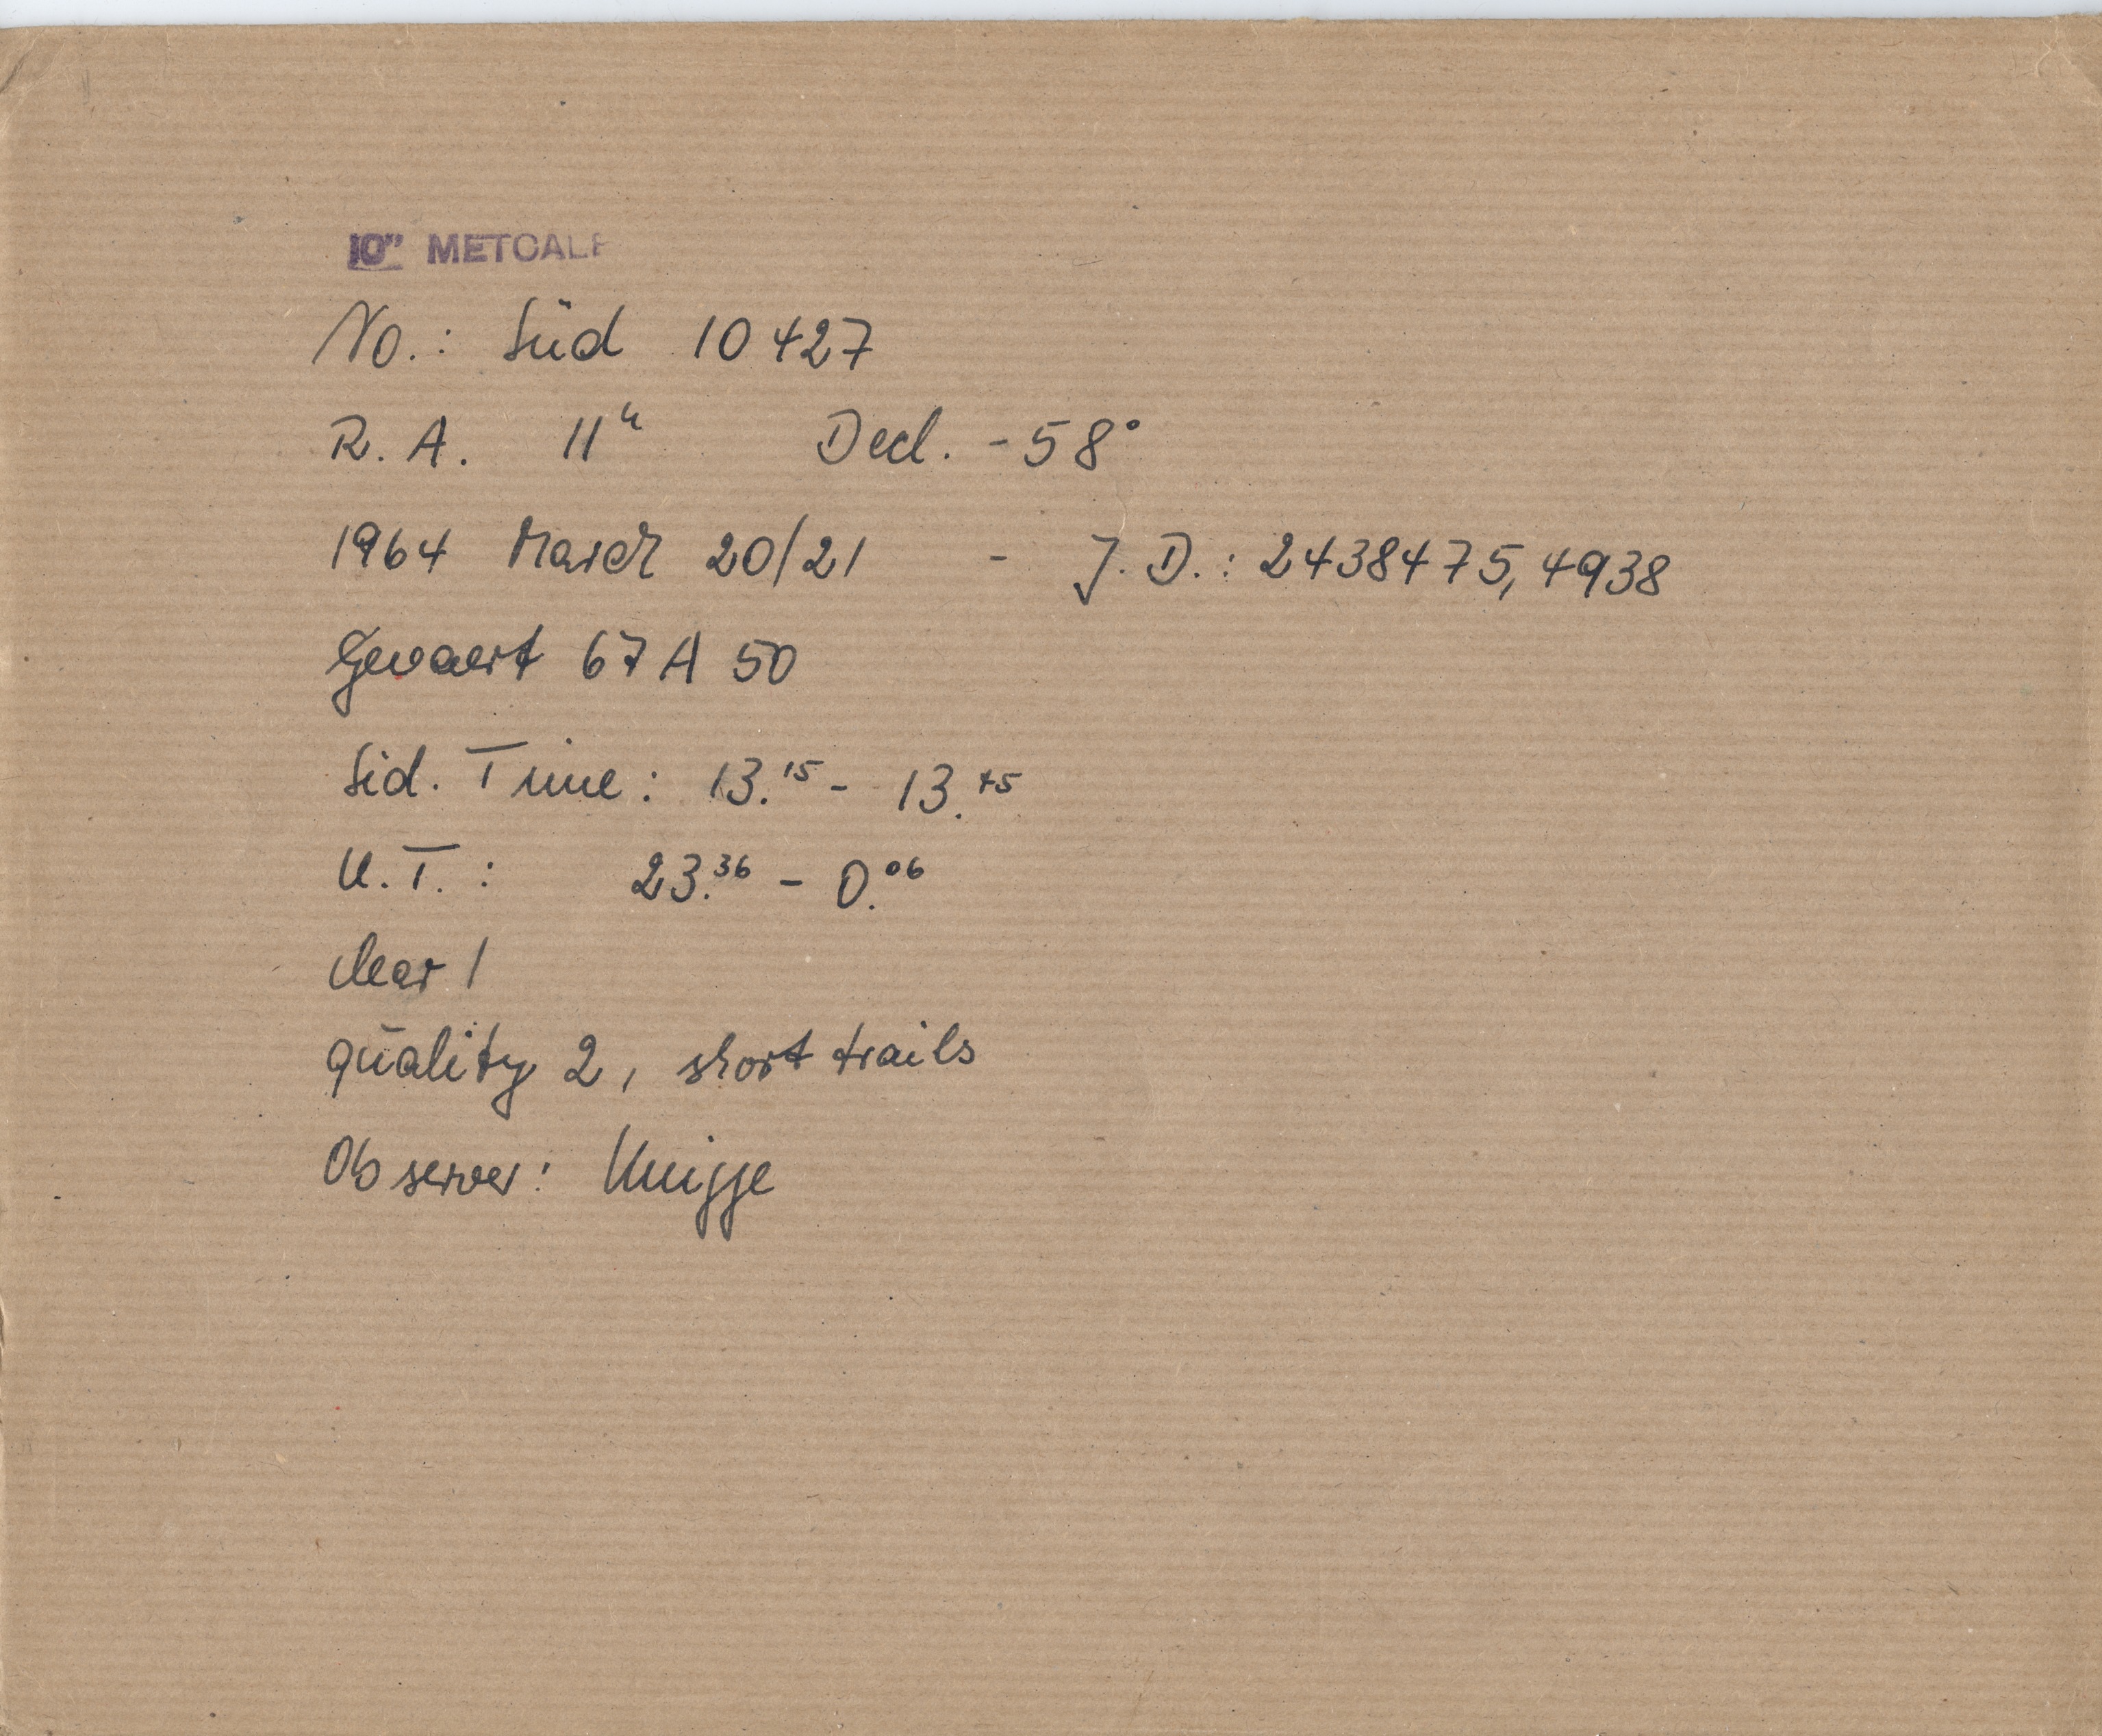 10" METCALF
No.: Süd 10427
R. A. 11ʰ Decl. -58°
1964 March 20/21 - J. D.: 2438475,4938
Gevaert 67 A 50
Sid. Time: 13.¹⁵ - 13.⁴⁵
U. T.: 23.³⁶ - 0.⁰⁶
clear 1
quality 2, short trails
Observer: Knigge